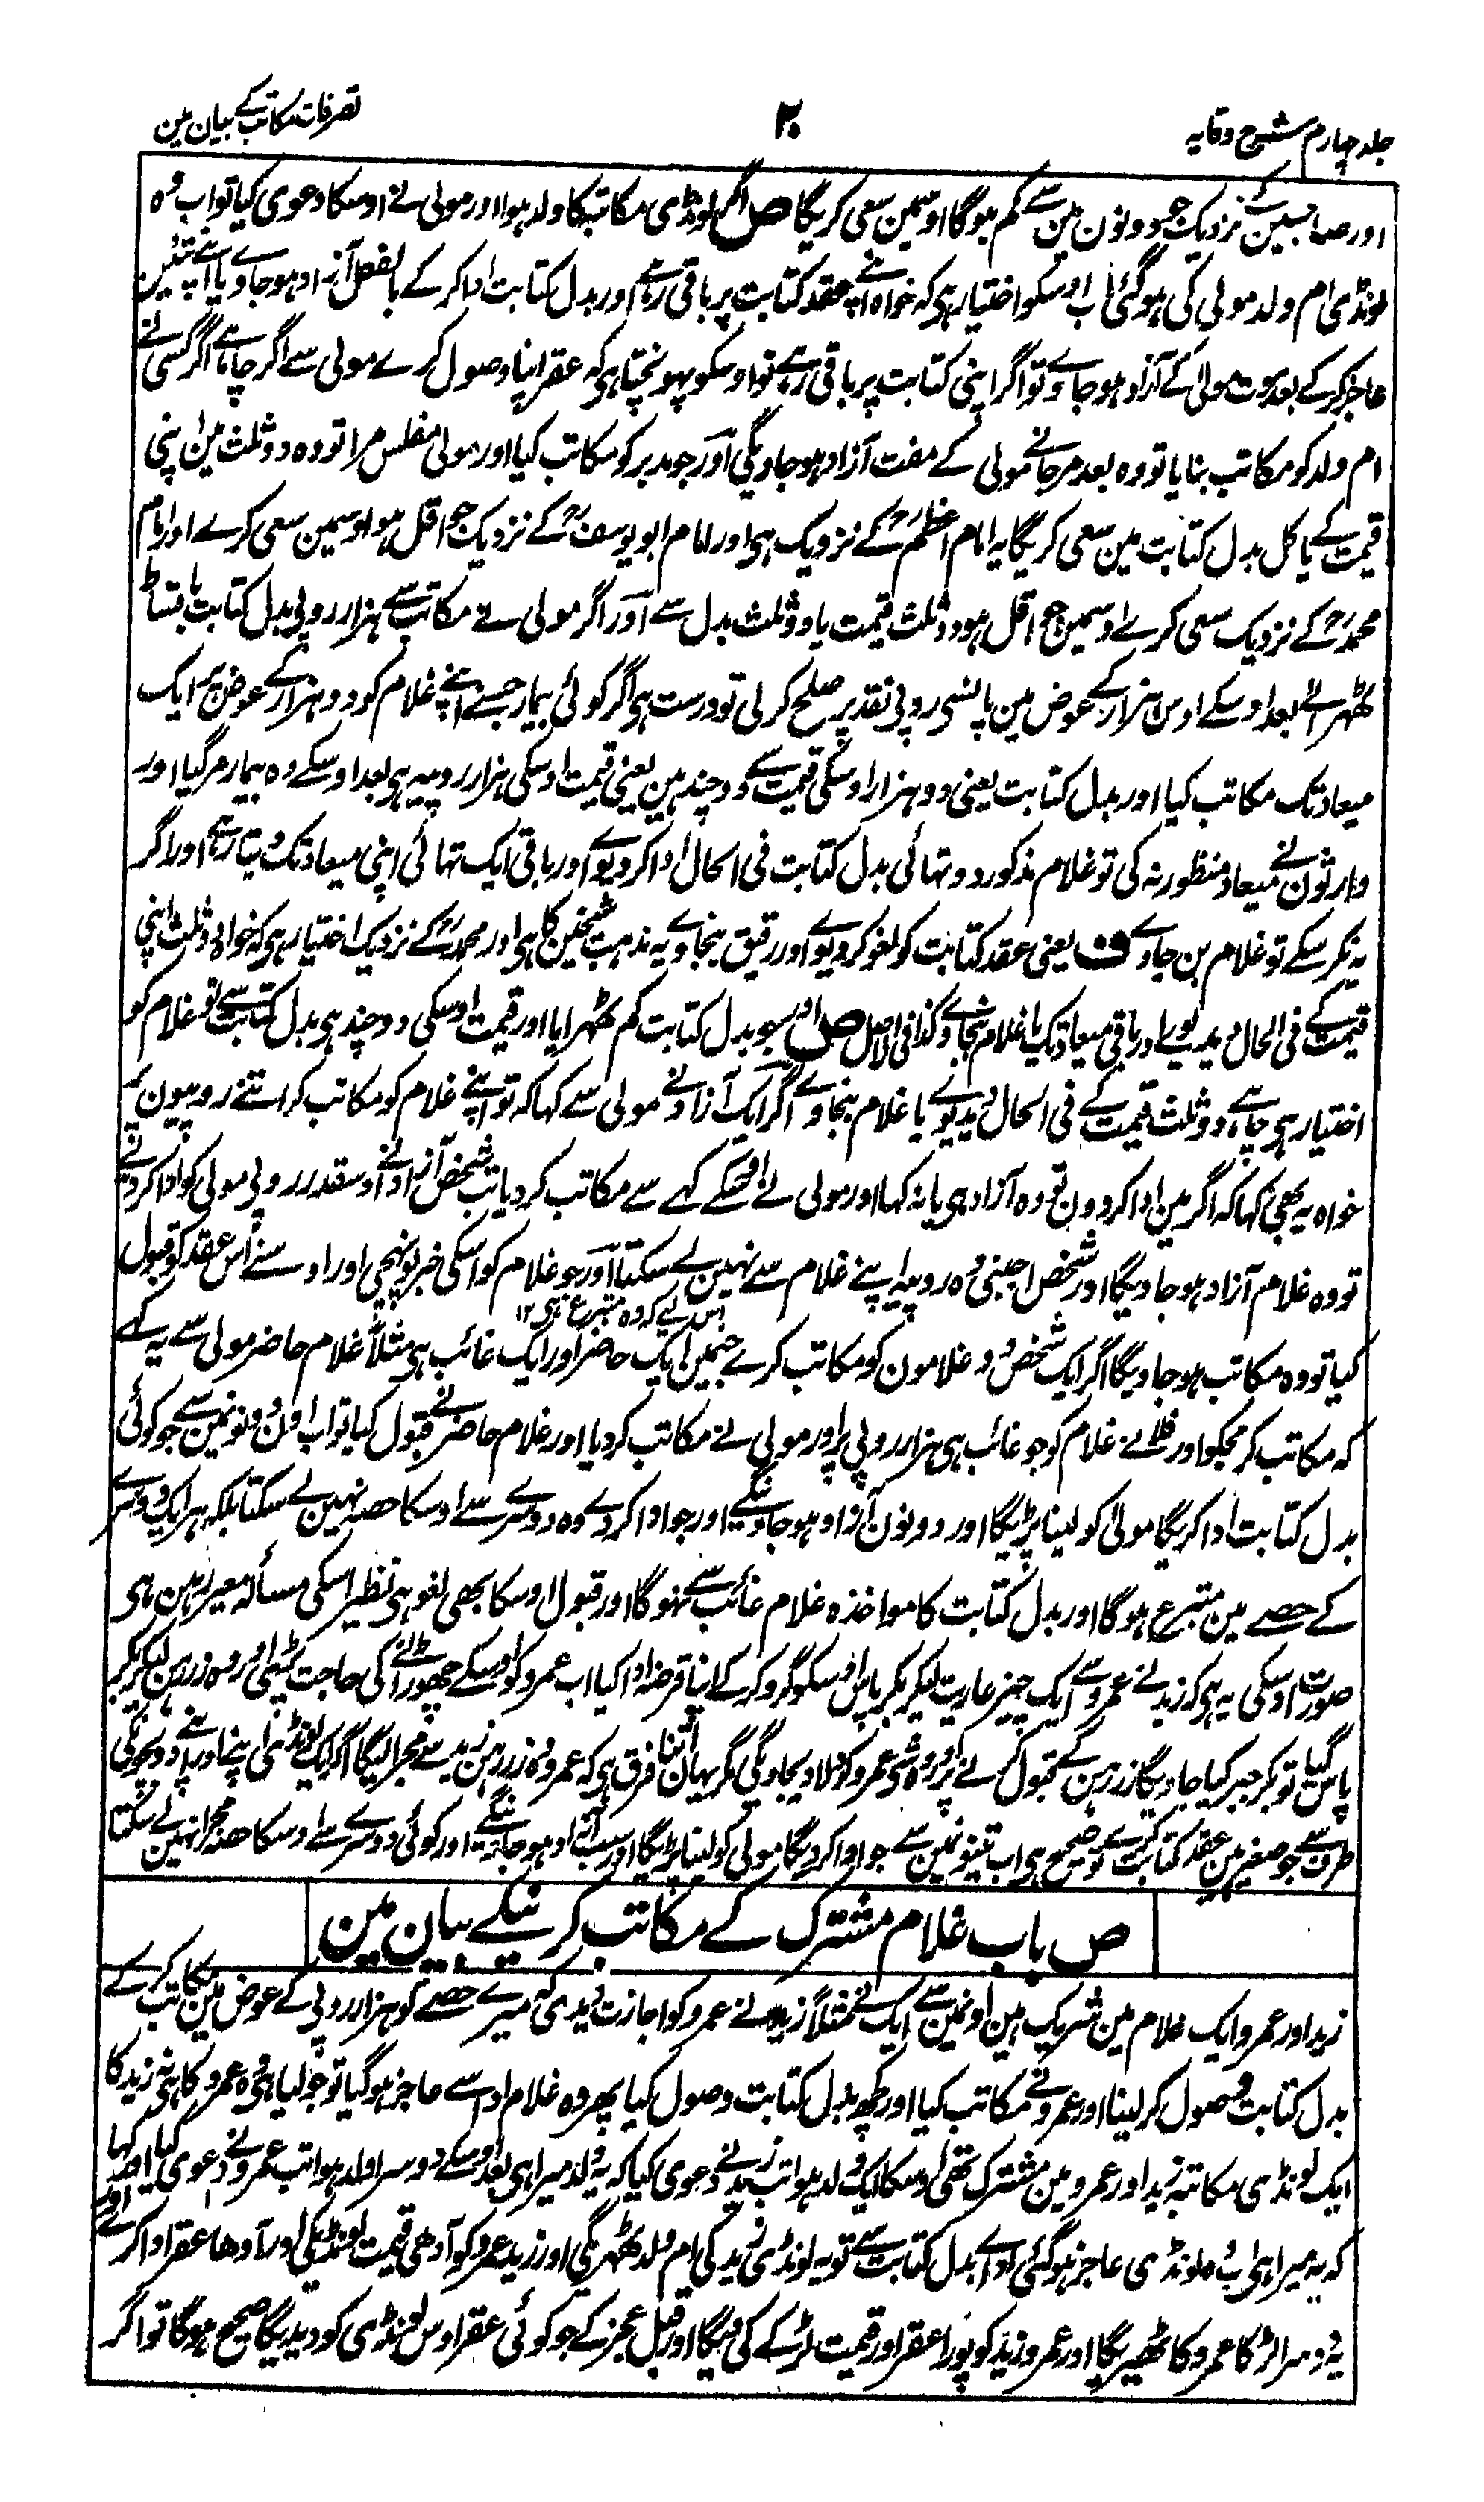 جلد چہارم شرح وقایہ
۲۰
تصرفات مکاتب کے بیان مین
اور صاحبین کے نزدیک جو دونون مین سے کم ہوگا اوسمین سعی کریگا ص اگر لونڈی مکاتبہ کا ولد ہوا اور مولی نے اوسکا دعوی کیا تو اب وہ
لونڈی ام ولد مولی کی ہو گئی اب اوسکو اختیار ہی کہ خواہ اپنے عقد کتابت پر باقی رہے اور بدل کتابت ادا کر کے بالفعل آزاد ہو جاوے یا اپنے تئین
عاجز کر کے بعد موت مولی کے آزاد ہو جاوے تو اگر اپنی کتابت پر باقی رہے تو اوسکو پہونچتا ہی کہ عقر اپنا وصول کرے مولی سے اگر چاہے اگر کسی نے
ام ولد کو مکاتب بنایا تو وہ بعد مر جانے مولی کے مفت آزاد ہو جاویگی اور جو مدبر کو مکاتب کیا اور مولی مفلس مرا تو وہ دو ثلث مین اپنی
قیمت کے یا کل بدل کتابت مین سعی کریگا یہ امام اعظمؒ کے نزدیک ہی اور امام ابو یوسفؒ کے نزدیک جو اقل ہو اوسمین سعی کرے اور امام
محمدؒ کے نزدیک سعی کرے اوسمین جو اقل ہو دو ثلث قیمت یا دو ثلث بدل سے اور اگر مولی نے مکاتب سے ہزار روپی بدل کتابت بامیعاد
ٹھہرائے بعد اوسکے اوس ہزار کے عوض مین پانسی روپی نقد پر صلح کر لی تو درست ہی اگر کوئی بیمار جسنے اپنے غلام کو دو ہزار کے عوض پر ایک
میعاد تک مکاتب کیا اور بدل کتابت یعنی دو ہزار اوسکی قیمت سے دو چند ہین یعنی قیمت اوسکی ہزار روپیہ ہی بعد اوسکے وہ بیمار مر گیا اور
وارثون نے میعاد منظور نہ کی تو غلام مذکور دو تہائی بدل کتابت فی الحال ادا کر دیوے اور باقی ایک تہائی اپنی میعاد تک دیتا رہے اور اگر
یہ نکر سکے تو غلام بن جاوے ف یعنی عقد کتابت کو لغو کر دیوے اور رقیق بنجاوے یہ مذہب شیخین کا ہی اور محمدؒ کے نزدیک اختیار ہی کہ خواہ دو ثلث اپنی
قیمت کے فی الحال دیدیوے اور باقی میعاد تک یا غلام بنجاوے کذا فی الاصل ص اور جو بدل کتابت کم ٹھہرایا اور قیمت اوسکی دو چند ہی بدل کتابت سے تو غلام کو
اختیار ہی چاہے دو ثلث قیمت کے فی الحال دیدیوے یا غلام بنجاوے اگر ایک آزاد نے مولی سے کہا کہ تو اپنے غلام کو مکاتب کر اتنے روپیون پر
خواہ یہ بھی کہا کہ اگر مین ادا کر دون تو وہ آزاد ہی یا نہ کہا اور مولی نے اوسکے کہے سے مکاتب کر دیا تب شخص آزاد نے اوسقدر روپی مولی کو ادا کر دیئے
تو وہ غلام آزاد ہو جاویگا اور شخص اجنبی وہ روپیہ اپنے غلام سے نہین لے سکتا اور جو غلام کو اسکی خبر پونہچی اور اوسنے اس عقد کو قبول
اس لیے کہ وہ متبرع ہی ۱۲
کیا تو وہ مکاتب ہو جاویگا اگر ایک شخص دو غلامون کو مکاتب کرے جنمین ایک حاضر اور ایک غائب ہی مثلاً غلام حاضر مولی سے یہ کہے
کہ مکاتب کر مجکو اور فلانے غلام کو جو غائب ہی ہزار روپی پر اور مولی نے مکاتب کر دیا اور غلام حاضر نے قبول کیا تو اب اون دونونمین سے جو کوئی
بدل کتابت ادا کریگا مولی کو لینا پڑیگا اور دونون آزاد ہو جاوینگے اور جو ادا کر دے وہ دوسرے سے اوسکا حصہ نہین لے سکتا بلکہ ہر ایک دوسرے
کے حصے مین متبرع ہوگا اور بدل کتابت کا مواخذہ غلام غائب سے نہوگا اور قبول اوسکا بھی لغو ہی نظیر اسکی مسألہ معیر رہن ہی
صورت اوسکی یہ ہی کہ زید نے عمرو سے ایک چیز عاریت لیکر بکر پاس اوسکو گرو کر کے اپنا قرضہ ادا کیا اب عمرو کو اوسکے چھوڑانے کی حاجت پڑی اور وہ زر رہن لیکر بکر
پاس گیا تو بکر جبر کیا جاویگا زر رہن کے قبول کرنے پر اور وہ شی عمرو کو دلا دیجاویگی مگر یہان اتنا فرق ہی کہ عمرو وہ زر رہن زید سے مجرا لیگا اگر ایک لونڈی اپنے اور اپنے دو بچونکی
طرف سے جو صغیر ہین عقد کتابت کرے تو صحیح ہی اب تینونمین سے جو ادا کریگا مولی کو لینا پڑیگا اور سب آزاد ہو جاوینگے اور کوئی دوسرے سے اوسکا حصہ مجرا نہین لے سکتا
ص باب غلام مشترک کے مکاتب کرنیکے بیان مین
زید اور عمرو ایک غلام مین شریک ہین اونمین سے ایک نے مثلاً زید نے عمرو کو اجازت دیدی کہ میرے حصے کو ہزار روپی کے عوض مین مکاتب کر کے
بدل کتابت وصول کر لینا اور عمرو نے مکاتب کیا اور کچھ بدل کتابت وصول کیا پھر وہ غلام ادا سے عاجز ہو گیا تو جو لیا ہی وہ عمرو کا ہی نہ زید کا
ایک لونڈی مکاتبہ زید اور عمرو مین مشترک تھی اوسکا ایک ولد ہوا تب زید نے دعوی کیا کہ یہ ولد میرا ہی بعد اوسکے دوسرا ولد ہوا تب عمرو نے دعوی کیا اور کہا
کہ یہ میرا ہی اب وہ لونڈی عاجز ہو گئی ادائے بدل کتابت سے تو یہ لونڈی زید کی ام ولد ٹھہریگی اور زید عمرو کو آدھی قیمت لونڈیکی اور آدھا عقر ادا کرے اور
یہ دوسرا لڑکا عمرو کا ٹھیریگا اور عمرو زید کو پورا عقر اور قیمت لڑکے کی دیگا اور قبل عجز کے جو کوئی عقر اوس لونڈی کو دیدیگا صحیح ہوگا تو اگر